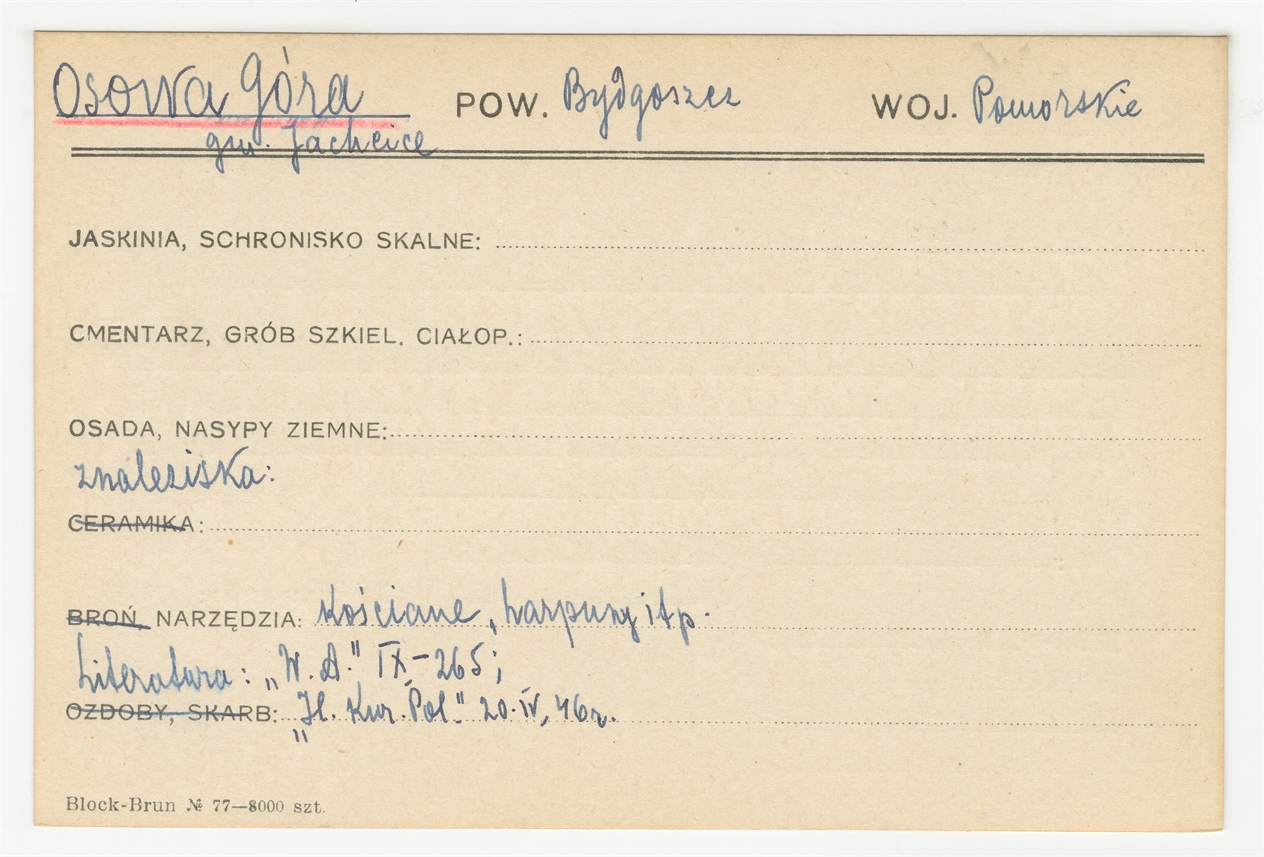 Osowa Góra POW. Bydgoszcz WOJ. Pomorskie
gm. Jachcice
JASKINIA, SCHRONISKO SKALNE:
CMENTARZ, GRÓB SZKIEL. CIAŁOP.:
OSADA, NASYPY ZIEMNE:
znaleziska:
CERAMIKA:
BROŃ, NARZĘDZIA: Kościane, harpuny itp.
Literatura: „W. A." IX-265;
OZDOBY, SKARB: „Il. Kur. Pol." 20.IV, 46r.
Block-Brun № 77—8000 szt.